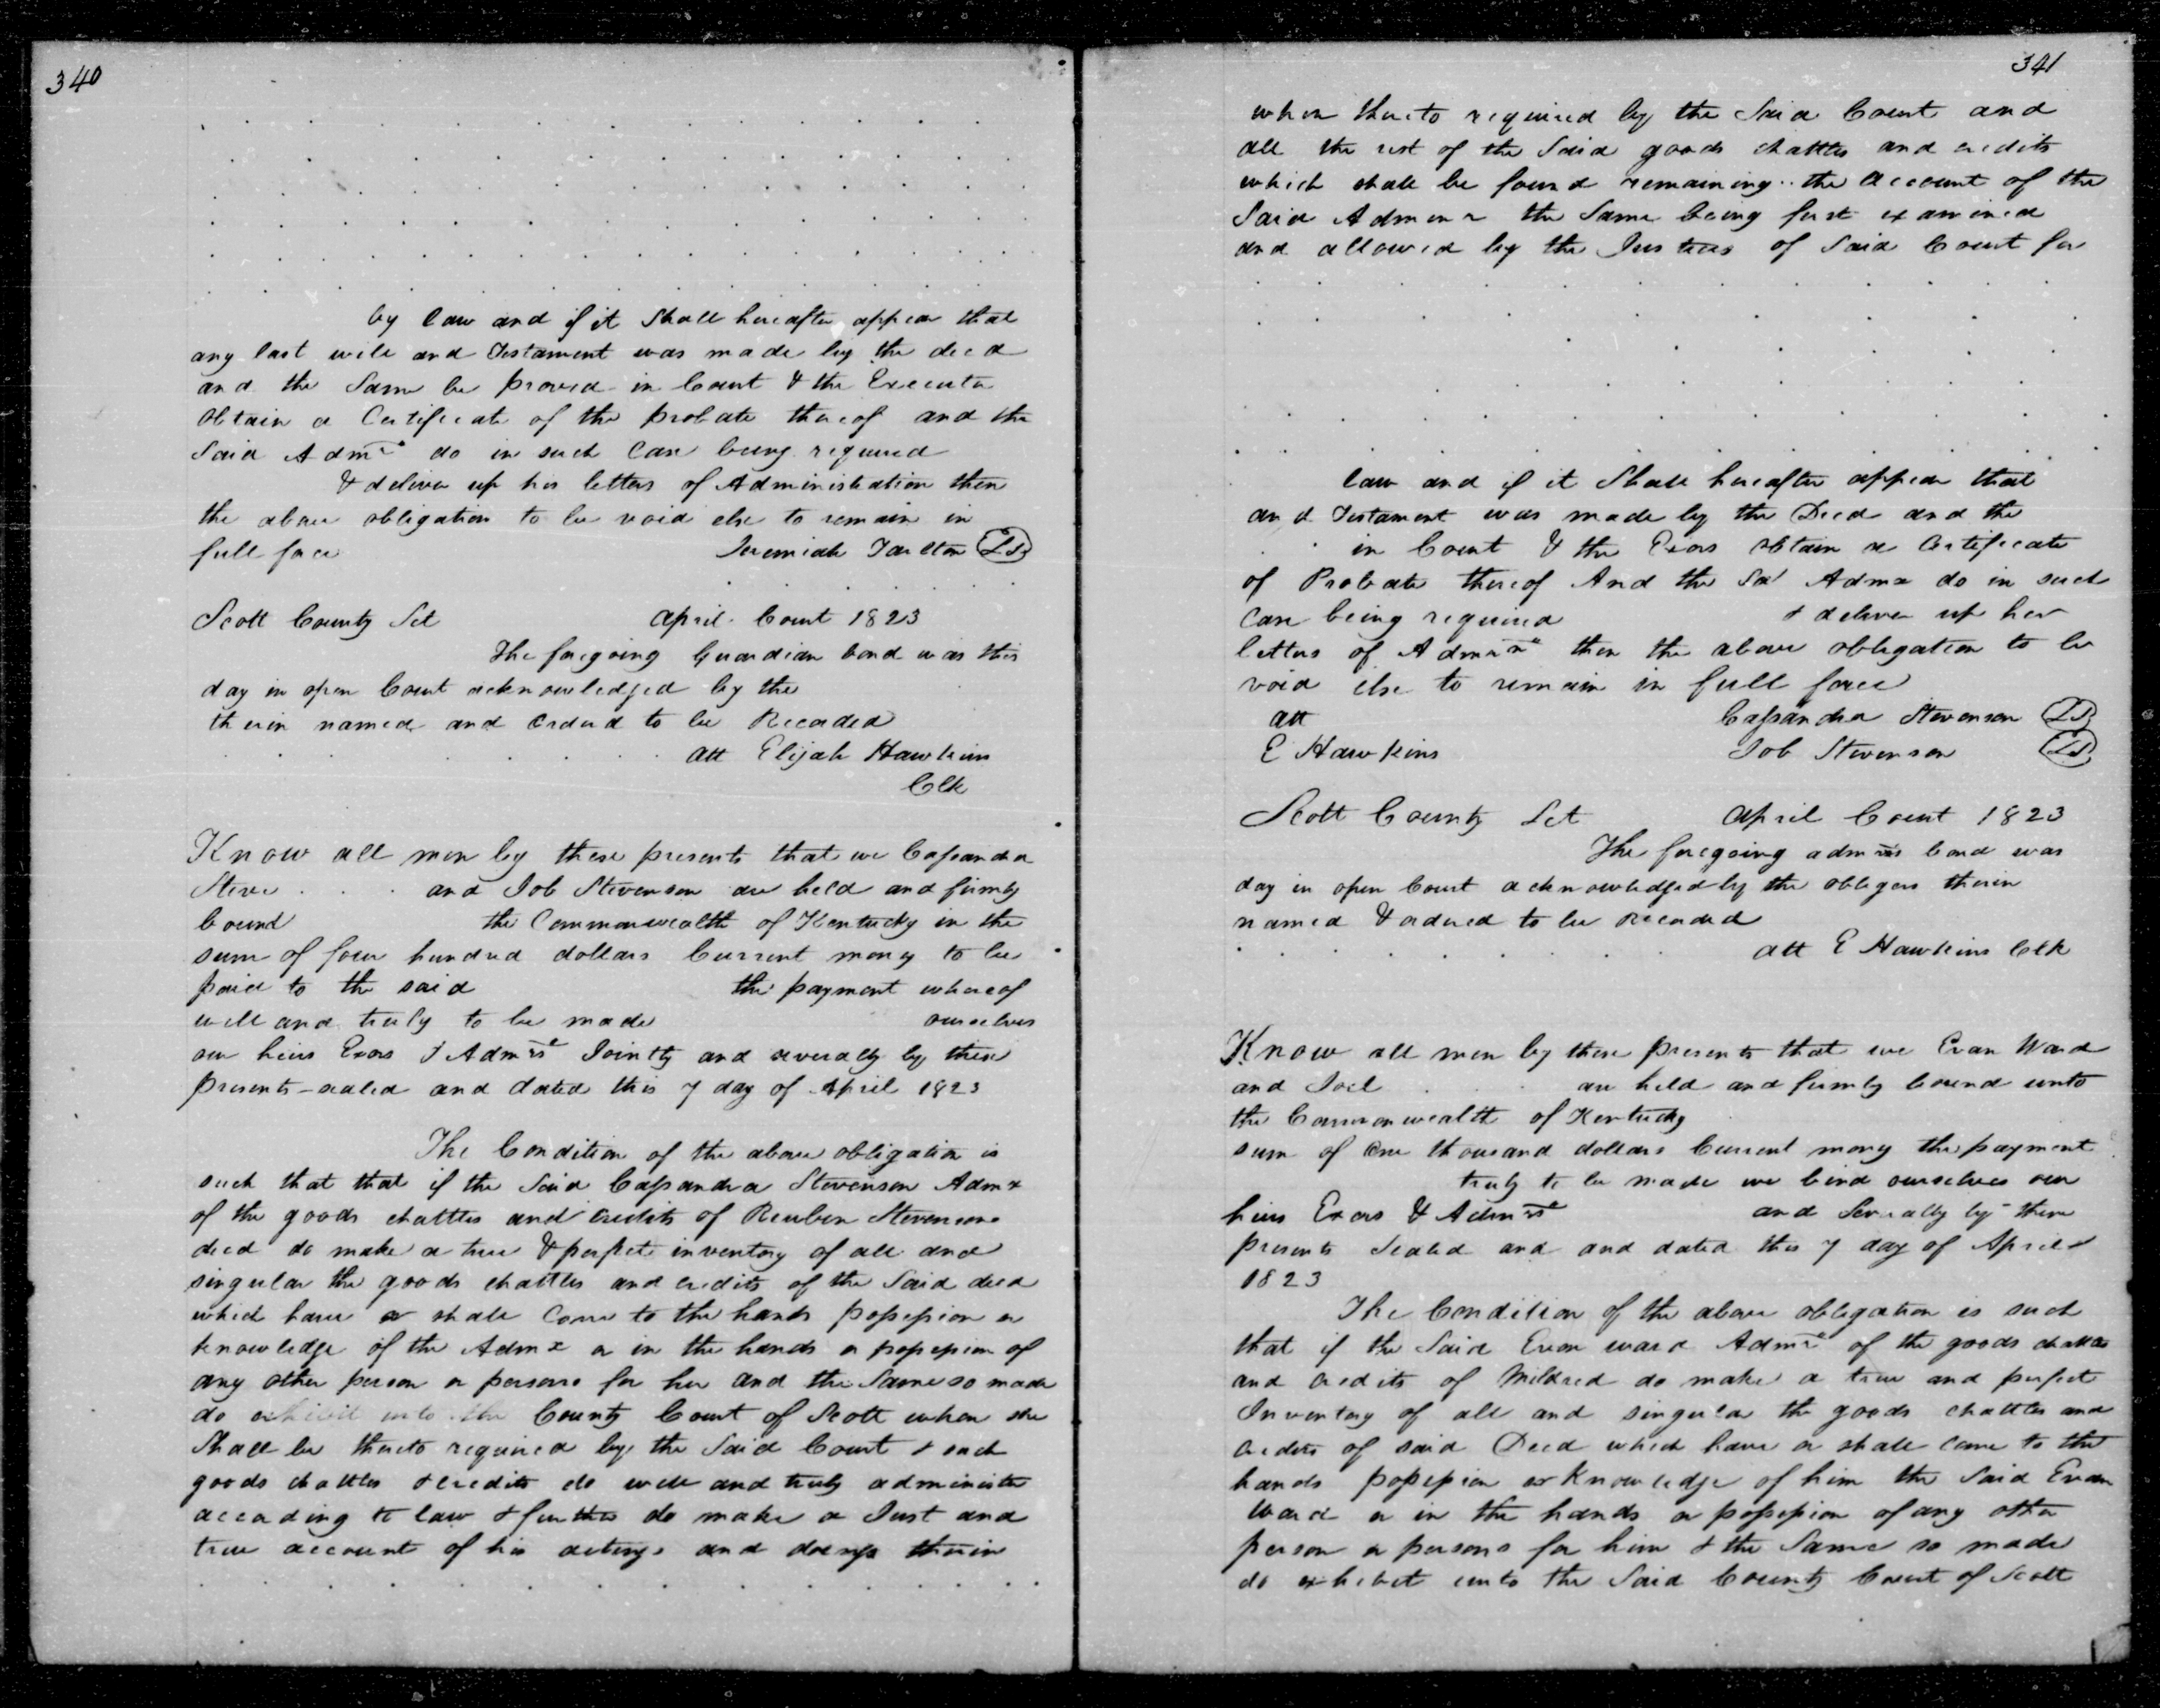 340
by law and if it Shall hereafter appear that
any last will and Testament was made by the decd
and the Same be proved in Court & the Executor
Obtain a Certificate of the probate thereof and the
Said Admr do in such Case being required
& deliver up his letters of Administration then
the above obligation to be void else to remain in
full force Jeremiah Tarlton LS
Scott County Sct April Court 1823
The foregoing Guardian bond was this
day in open Court acknowledged by the
therin named and Orderd to be Recorded
att Elijah Hawkins
Clk
Know all men by these presents that we Cassandra
Steve and Job Stevenson are held and firmly
bound the Commonwealth of Kentucky in the
sum of four hundred dollars Current money to be
paid to the said the payment whereof
well and truly to be made ourselves
our heirs Exors & Admrs Jointly and severally by these
presents sealed and dated this 7 day of April 1823
The Condition of the above obligation is
such that that if the Said Cassandra Stevenson Admx
of the goods chattles and Credits of Reuben Stevenson
decd do make a true & perfect inventory of all and
singular the goods chattles and credits of the Said decd
which have or shall Come to the hands possession or
knowledge of the Admx or in the hands or possession of
any other person or persons for her and the Same so made
do exhibit into the County Court of Scott when she
Shall be thereto required by the Said Court & such
goods chattles & credits do well and truly administer
according to law & further do make a Just and
true account of his actings and doings therin
341
when thereto required by the Said Court and
all the rest of the Said goods chattles and credits
which shall be found remaining the account of the
Said Admenr the Same being first examined
and allowed by the Justices of Said Court for
law and if it Shall hereafter appear that
and Testament was made by the Decd and the
in Court & the Exors Obtain a Certificate
of Probate thereof And the Sd Admx do in such
Case being required & deliver up her
letters of Admrn then the above obligation to be
void else to remain in full force
att Cassandra Stevenson LS
E Hawkins Job Stevenson LS
Scott County Sct April Court 1823
The foregoing admrs bond was
day in open Court acknowledged by the obligors therin
named & ordered to be Recorded
att E Hawkins Clk
Know all men by these presents that we Evan Ward
and Joel are held and firmly bound unto
the Commonwealth of Kentucky
sum of One thousand dollars Current mony the payment
truly to be made we bind ourselves our
heirs Exors & Admrs and Severally by these
presents Sealed and and dated this 7 day of April
1823
The Condition of the above obligation is such
that if the Said Evan ward Admr of the goods chattles
and credits of Mildred do make a true and perfect
Inventory of all and singular the goods chattles and
credits of said Decd which have or shall come to the
hands possession or Knowledge of him the Said Evan
Ward or in the hands or possession of any other
person or persons for him & the Same so made
do exhibit unto the Said County Court of Scott